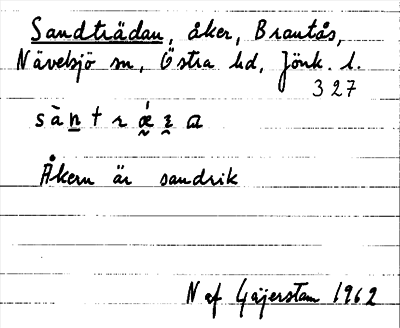 Sandträdan, åker, Brantås,
Nävelsjö sn, Östra hd, Jönk. l.
327
Åkern är sandrik
N af Gäijerstam 1962